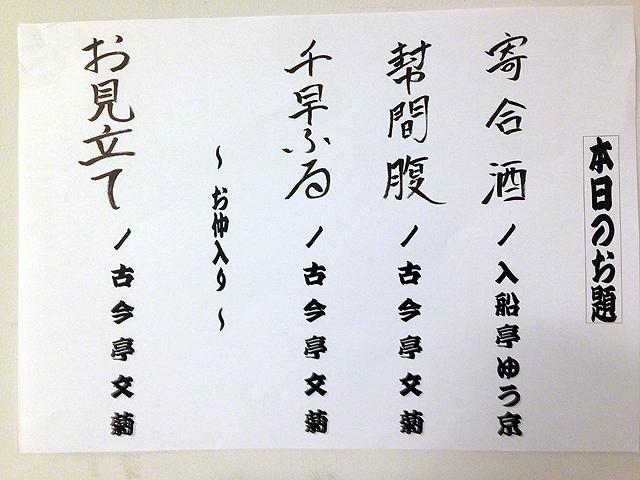 本日のお題
寄合酒／入船亭ゆう京
幇間腹／古今亭文菊
千早ふる／古今亭文菊
～お仲入り～
お見立て／古今亭文菊